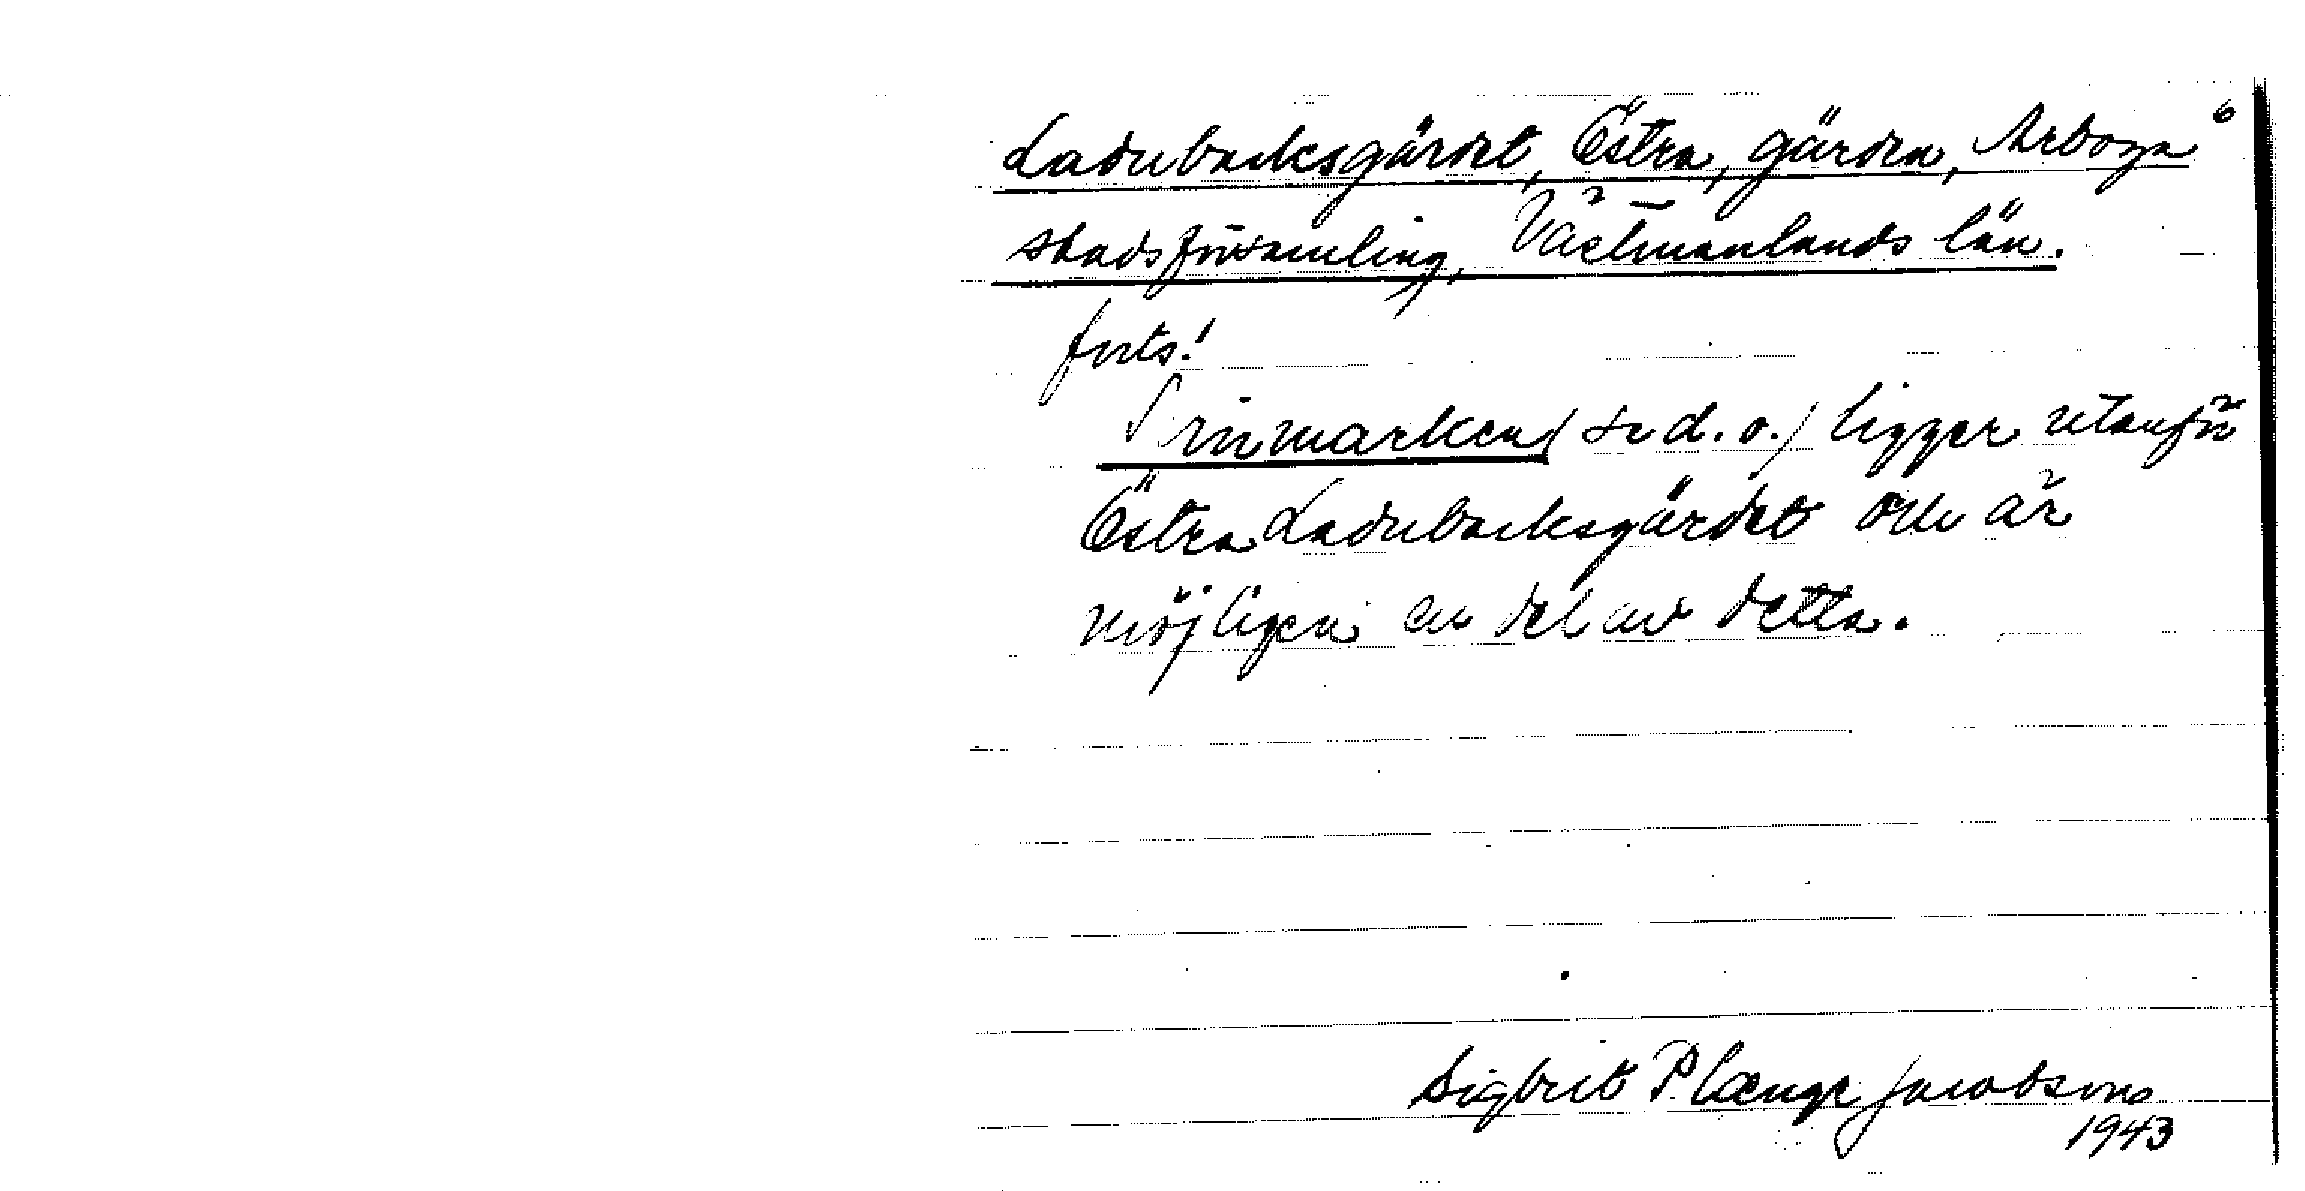 Ladubacksgärdet, Östra, gärden, Arboga 6
stadsförsamling, Västmanlands län.
forts!
marken (se d. o.) ligger utanför
Östra Ladubacksgärdet och är
möjligen en del av detta.
Sigbrit Plænge Jacobson
1943